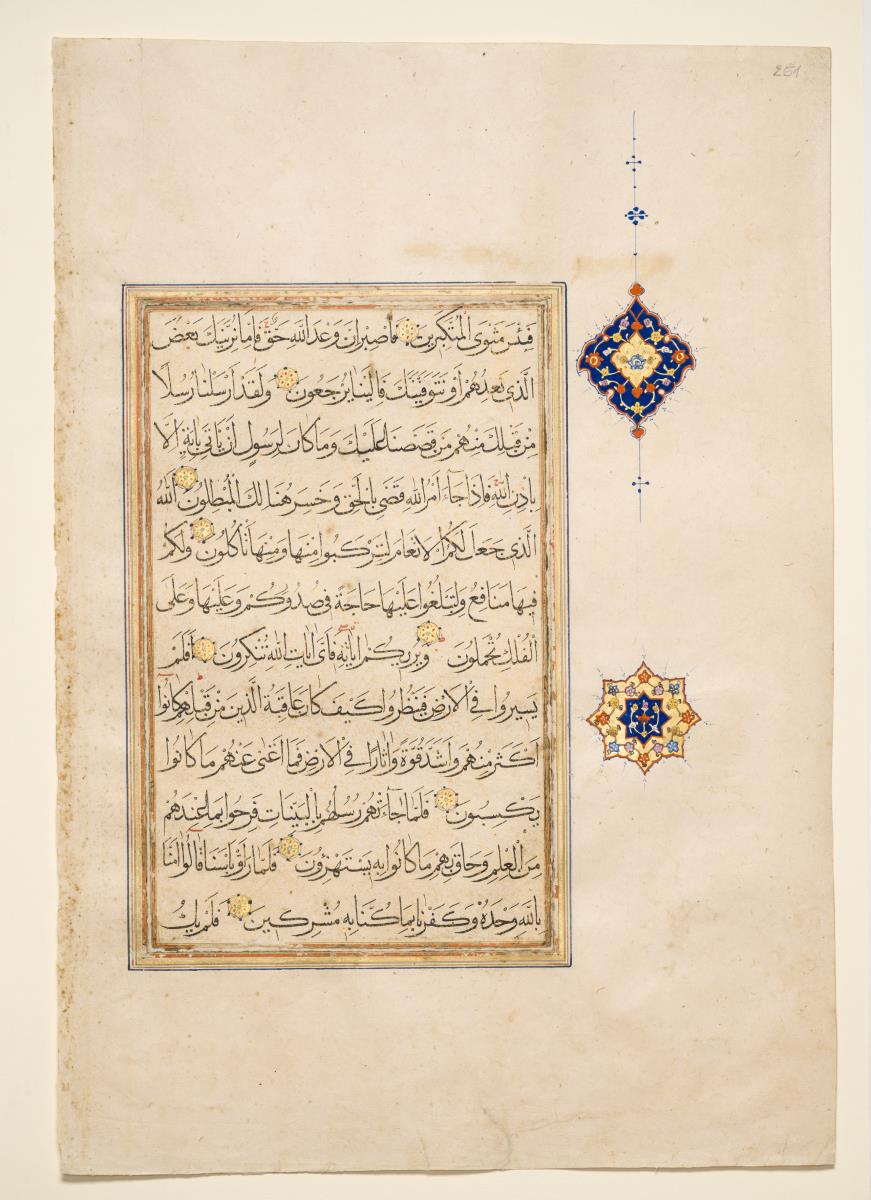 ٤٥١
فَبِئْسَ مَثْوَى الْمُتَكَبِّرِينَ فَاصْبِرْ اِنَّ وَعْدَ اللّٰهِ حَقٌّ فَاِمَّا نُرِيَنَّكَ بَعْضَ
الَّذِى نَعِدُهُمْ اَوْ نَتَوَفَّيَنَّكَ فَاِلَيْنَا يُرْجَعُونَ وَلَقَدْ اَرْسَلْنَا رُسُلًا
مِنْ قَبْلِكَ مِنْهُمْ مَنْ قَصَصْنَا عَلَيْكَ وَمَا كَانَ لِرَسُولٍ اَنْ يَاْتِىَ بِاٰيَةٍ اِلَّا
بِاِذْنِ اللّٰهِ فَاِذَا جَاءَ اَمْرُ اللّٰهِ قُضِىَ بِالْحَقِّ وَخَسِرَ هُنَالِكَ الْمُبْطِلُونَ اَللّٰهُ
الَّذِى جَعَلَ لَكُمُ الْاَنْعَامَ لِتَرْكَبُوا مِنْهَا وَمِنْهَا تَاْكُلُونَ وَلَكُمْ
فِيهَا مَنَافِعُ وَلِتَبْلُغُوا عَلَيْهَا حَاجَةً فِى صُدُورِكُمْ وَعَلَيْهَا وَعَلَى
الْفُلْكِ تُحْمَلُونَ وَيُرِيكُمْ اٰيَاتِهِ فَاَىَّ اٰيَاتِ اللّٰهِ تُنْكِرُونَ اَفَلَمْ
يَسِيرُوا فِى الْاَرْضِ فَيَنْظُرُوا كَيْفَ كَانَ عَاقِبَةُ الَّذِينَ مِنْ قَبْلِهِمْ كَانُوا
اَكْثَرَ مِنْهُمْ وَاَشَدَّ قُوَّةً وَاٰثَارًا فِى الْاَرْضِ فَمَا اَغْنٰى عَنْهُمْ مَا كَانُوا
يَكْسِبُونَ فَلَمَّا جَاءَتْهُمْ رُسُلُهُمْ بِالْبَيِّنَاتِ فَرِحُوا بِمَا عِنْدَهُمْ
مِنَ الْعِلْمِ وَحَاقَ بِهِمْ مَا كَانُوا بِهِ يَسْتَهْزِؤُنَ فَلَمَّا رَاَوْا بَاْسَنَا قَالُوا اٰمَنَّا
بِاللّٰهِ وَحْدَهُ وَكَفَرْنَا بِمَا كُنَّا بِهِ مُشْرِكِينَ فَلَمْ يَكُ